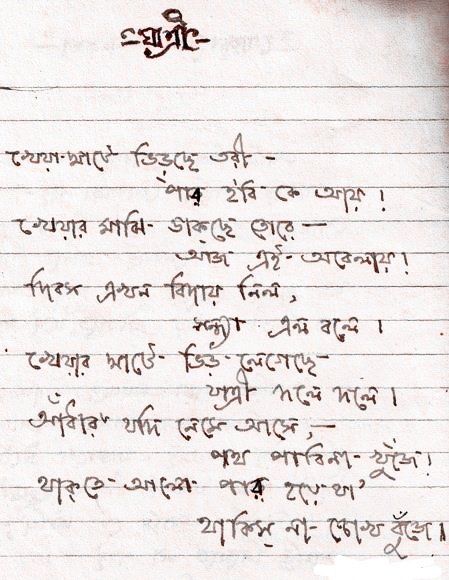 -যাত্রী-
খেয়া-ঘাটে ভিড়ছে তরী -
পার হবি কে আয় !
খেয়ার মাঝি- ডাকছে তোরে —
আজ এই- অবেলায় !
দিবস এখন বিদায় নিল ,
সন্ধ্যা এল বলে ।
খেয়ার ঘাটে- ভিড় লেগেছে-
যাত্রী দলে দলে ।
আঁধার যদি নেমে আসে ,—
পথ পাবিনা- খুঁজে !
থাক্‌তে- আলো- পার হয়ে যা'
থাকিস্ না- চোখ বুঁজে ।